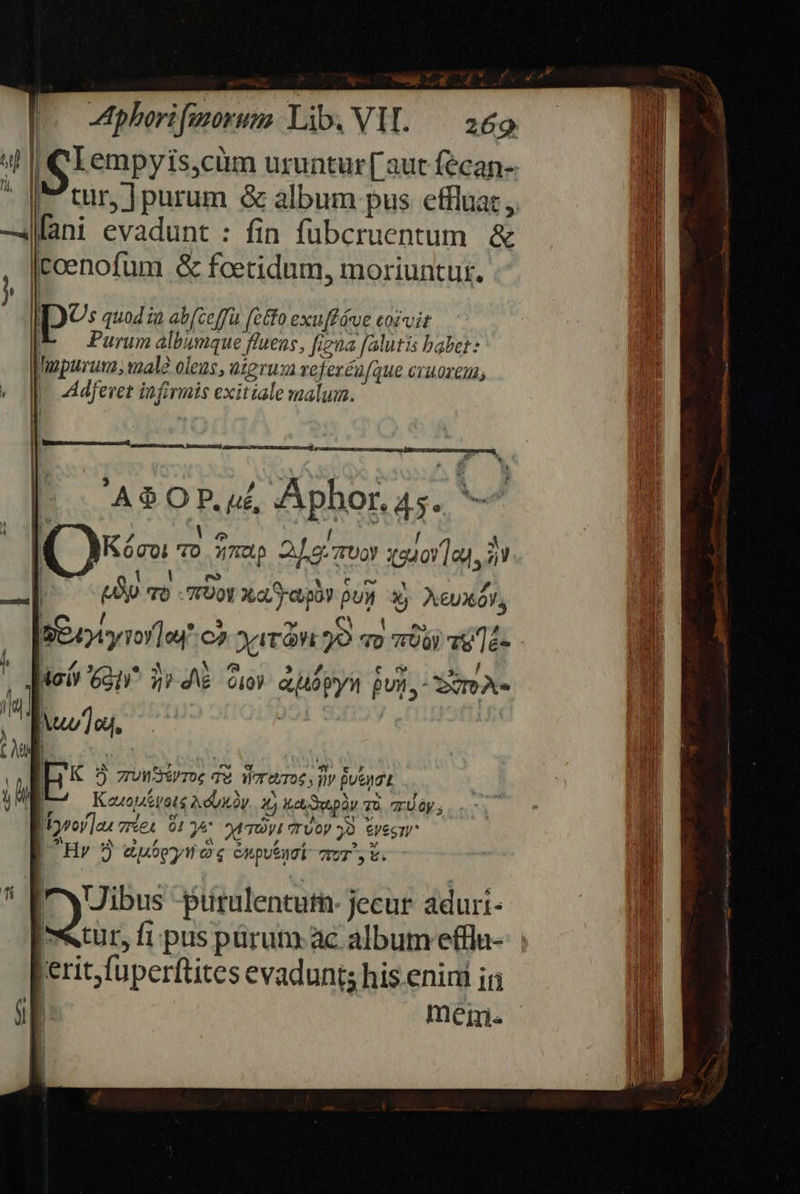 Aphoriſmorum Lib. VII. 269
SI empyis, cùm uruntur [aut ſecan-
tur,] purum & album pus effluat,
ſani evadunt : ſin ſubcruentum &
cœnoſum & fœtidum, moriuntur.
PUs quod in abſceſſu
Purum albumque fluens, ſigna ſalutis habet:
Impurum, malè olens, nigrum referénſque cruorem,
Adferet infirmis exitiale malum.
ἈΦΟΡ. μέ, Aphor. 45.
ὉΚόσοι τὸ ἧπαρ διάπυον καίονται, ἢν
μὲν τὸ πῦον καθαρὸν ῥυῇ καὶ λευκόν,
περιγίγνονται· ἐν χιτῶνι γὸ τὸ πῦον τουτέ-
οισίν ἐστιν· ἢν δὲ οἷον ἀμόργη ῥυῇ, ἀπόλ-
λυνται.
πυηθέντος τοῦ ἥπατος, ἢν ῥυέησι
Καιομένοις λευκὸν καὶ καθαρὸν τὸ πύον,
χιτῶνι πύον γὸ ἔνεστιν·
Ἢν ἀμόργη ὡς ἐκρυέησί ποτ᾽, οὔ.
QUibus purulentum jecur aduri-
tur, ſi pus purum ac album efflu-
erit, ſuperſtites evadunt; his enim in
mem-